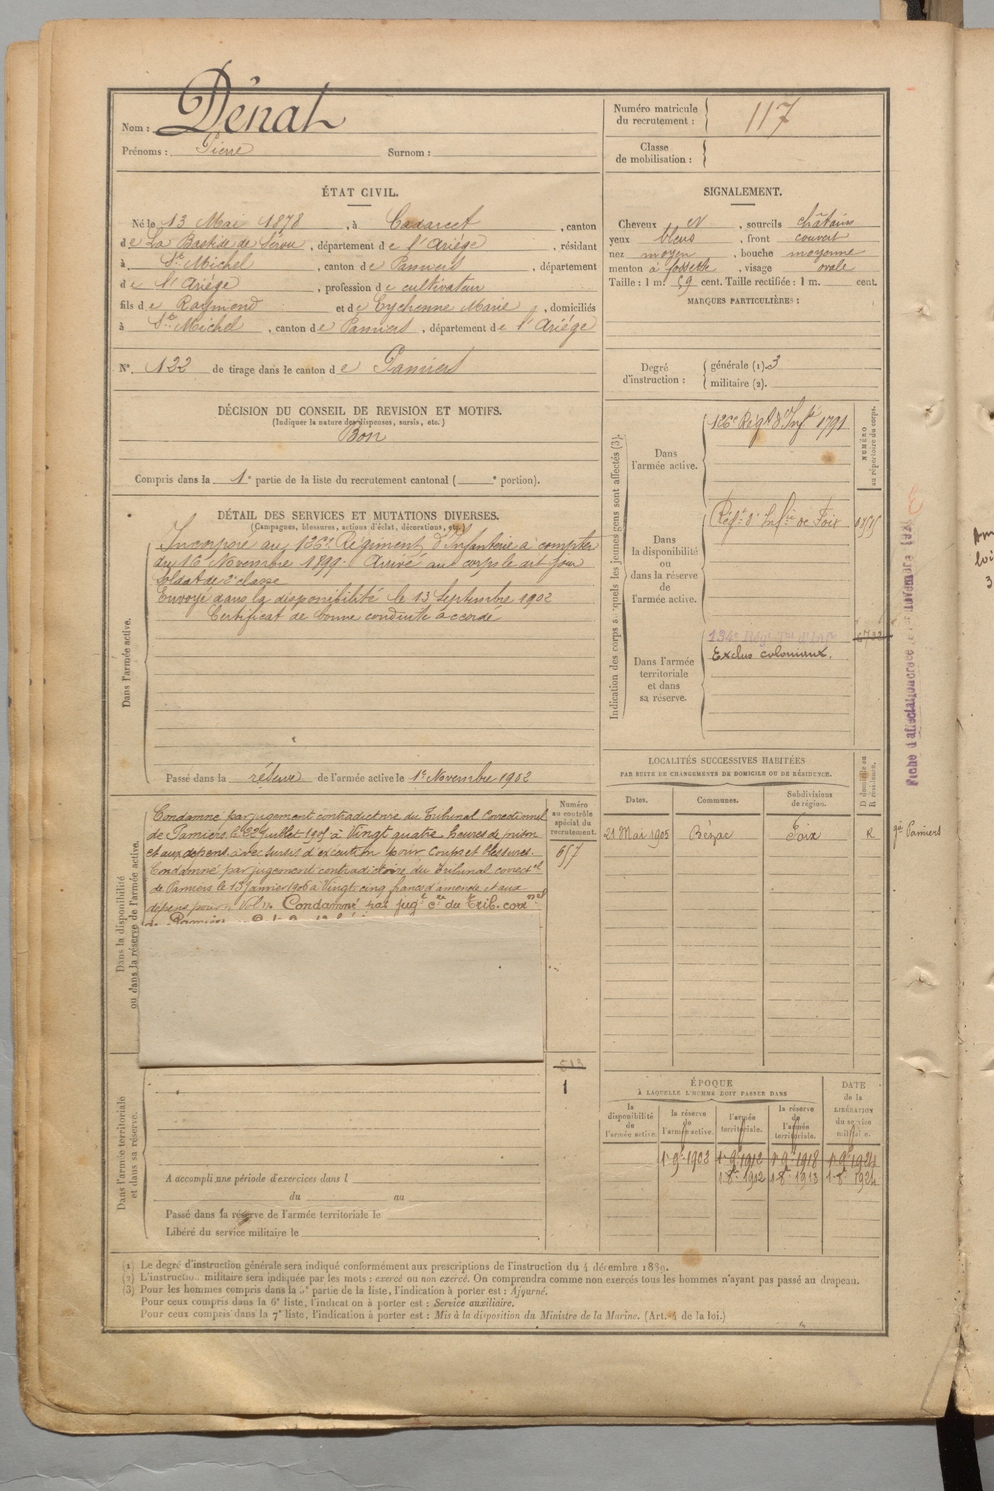 Nom : Dénat
Prénoms : Pierre Surnom :
Numéro matricule du recrutement : 117
Classe de mobilisation :
ÉTAT CIVIL.
Né le 13 Mai 1878, à Cadarcet, canton
de La Bastide de Sérou, département de l'Ariége, résidant
à St. Michel, canton de Pamiers, département
de l'Ariége, profession de cultivateur
fils de Raymond et de Eychenne Marie, domiciliés
à St. Michel, canton de Pamiers, département de l'Ariége
N° 122 de tirage dans le canton de Pamiers
SIGNALEMENT.
Cheveux et, sourcils châtains
yeux bleus, front couvert
nez moyen, bouche moyenne
menton à fossette, visage ovale
Taille : 1 m. 59 cent. Taille rectifiée : 1 m. cent.
MARQUES PARTICULIÈRES :
Degré d'instruction : générale (1). 3
militaire (2).
DÉCISION DU CONSEIL DE REVISION ET MOTIFS.
(Indiquer la nature des dispenses, sursis, etc.)
Bon
Compris dans la 1e partie de la liste du recrutement cantonal ( e portion).
DÉTAIL DES SERVICES ET MUTATIONS DIVERSES.
(Campagnes, blessures, actions d'éclat, décorations, etc.)
Dans l'armée active.
Incorporé au 126e Régiment d'Infanterie à compter
du 16 Novembre 1899. Arrivé au corps le dit jour
soldat de 2e classe
Envoyé dans la disponibilité le 13 Septembre 1902
Certificat de bonne conduite accordé
Passé dans la réserve de l'armée active le 1er Novembre 1902
Indication des corps auxquels les jeunes gens sont affectés (3).
NUMÉRO au répertoire du corps.
Dans l'armée active.
126e Régt d'Infie 1791
Dans la disponibilité ou dans la réserve de l'armée active.
Régt d'Infie de Foix
Dans l'armée territoriale et dans sa réserve.
Exclus coloniaux.
Dans la disponibilité ou dans la réserve de l'armée active.
Numéro au contrôle spécial du recrutement.
657
Condamné par jugement contradictoire du Tribunal Correctionnel
de Pamiers, le 22 Juillet 1905 à Vingt quatre heures de prison
et aux dépens avec sursis d'exécution pour Coups et blessures.
Condamné par jugement contradictoire du Tribunal correctel
de Pamiers le Janvier 1906 à Vingt cinq francs d'amende et aux
dépens pour "Vol". Condamné par jugt cre du Trib. corrnel
de Pamiers
LOCALITÉS SUCCESSIVES HABITÉES
PAR SUITE DE CHANGEMENTS DE DOMICILE OU DE RÉSIDENCE.
Dates. Communes. Subdivisions de région. D domicile ou R résidence.
21 Mai 1905 Bézac Foix R
Pamiers
Dans l'armée territoriale et dans sa réserve.
513
1
A accompli une période d'exercices dans l
du au
Passé dans la réserve de l'armée territoriale le
Libéré du service militaire le
ÉPOQUE
À LAQUELLE L'HOMME DOIT PASSER DANS
DATE de la LIBÉRATION du service militaire.
la disponibilité de l'armée active. la réserve de l'armée active. l'armée territoriale. la réserve de l'armée territoriale.
1er 9bre 1902 1er 9bre 1912 1er 9bre 1918 1er 9bre 1924
1 8bre 1912 1 8bre 1918 1 8bre 1924
(1) Le degré d'instruction générale sera indiqué conformément aux prescriptions de l'instruction du 4 décembre 1889.
(2) L'instruction militaire sera indiquée par les mots : exercé ou non exercé. On comprendra comme non exercés tous les hommes n'ayant pas passé au drapeau.
(3) Pour les hommes compris dans la 5e partie de la liste, l'indication à porter est : Ajourné.
Pour ceux compris dans la 6e liste, l'indication à porter est : Service auxiliaire.
Pour ceux compris dans la 7e liste, l'indication à porter est : Mis à la disposition du Ministre de la Marine. (Art. 4 de la loi.)